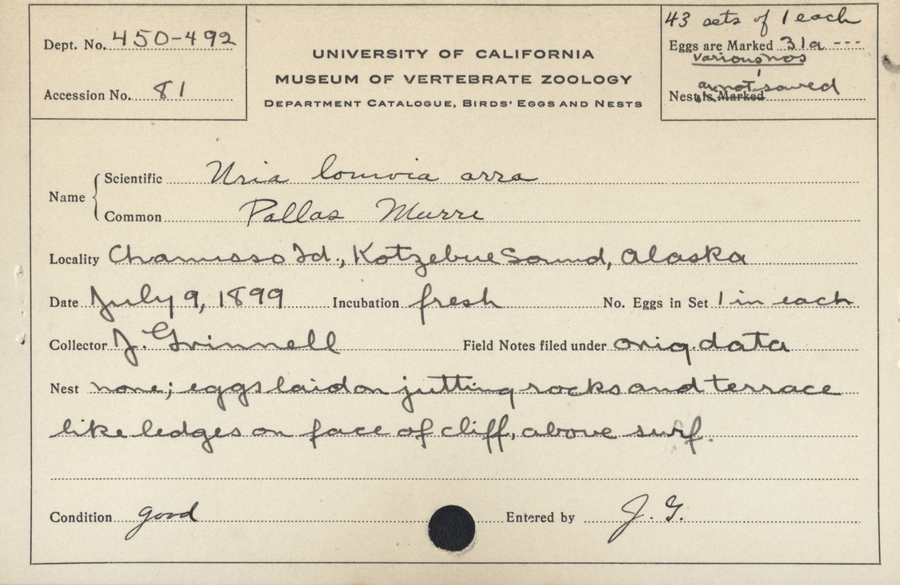 Dept. No. 450-492
Accession No. 81
UNIVERSITY OF CALIFORNIA
MUSEUM OF VERTEBRATE ZOOLOGY
DEPARTMENT CATALOGUE, BIRDS' EGGS AND NESTS
43 sets of 1 each
Eggs are Marked 31a ---
various nos
are not saved
Nest is Marked
Name
Scientific Uria lomvia arra
Common Pallas Murre
Locality Chamisso Id., Kotzebue Sound, Alaska
Date July 9, 1899 Incubation fresh No. Eggs in Set 1 in each
Collector J. Grinnell Field Notes filed under orig. data
Nest none; eggs laid on jutting rocks and terrace
like ledges on face of cliff, above surf.
Condition good Entered by J. G.